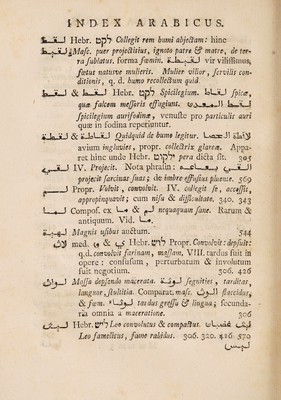 INDEX ARABICUS.
لقط Hebr. לקט Collegit rem humi abjectam: hinc
لقيط Masc. puer projectitius, ignoto patre & matre, de ter-
ra sublatus. forma fœmin. لقيطة vir vilissimus,
fœtus naturæ mulieris. Mulier vilior, servilis con-
ditionis, q. d. humo recollectum quid.
لقط & لقاط Hebr. לקט Spicilegium. spicæ,
quæ falcem messoris effugiunt. لقط المعدن
spicilegium aurifodinæ, venuste pro particulis auri
quæ in fodina reperiuntur.
لقطة & لقاطة Quidquid de humo legitur. لاقطة الحصا
avium ingluvies, propr. collectrix glareæ. Appa-
ret hinc unde Hebr. ילקוט pera dicta sit. 305
لقي IV. Projecit. Nota phrasin:
projecit sarcinas suas; de imbre effusius pluente. 369
لم Propr. Volvit, convolvit. IV. collegit se, accessit,
appropinquavit; cum nisu & difficultate. 340. 343
لما Compos. ex ما & لم nequaquam sane. Rarum &
antiquum. Vid. ما.
Magnis usibus auctum. 544
لاث med. و & ي Hebr. לוש Propr. Convolvit: depsuit:
q.d. convolvit farinam, massam. VIII. tardus fuit in
opere: confusum, perturbatum & involutum
fuit negotium. 306. 426
Massa depsendo macerata. لوثة segnities, tarditas,
languor, stultitia. Comparat. masc. الوث flaccidus;
& fœm. لوثاء tardus gressu & lingua; secunda-
ria omnia a maceratione. 306
ليث Hebr. ליש Leo convolutus & compactus.
Leo famelicus, fame rabidus. 306. 320. 426. 570
ليس